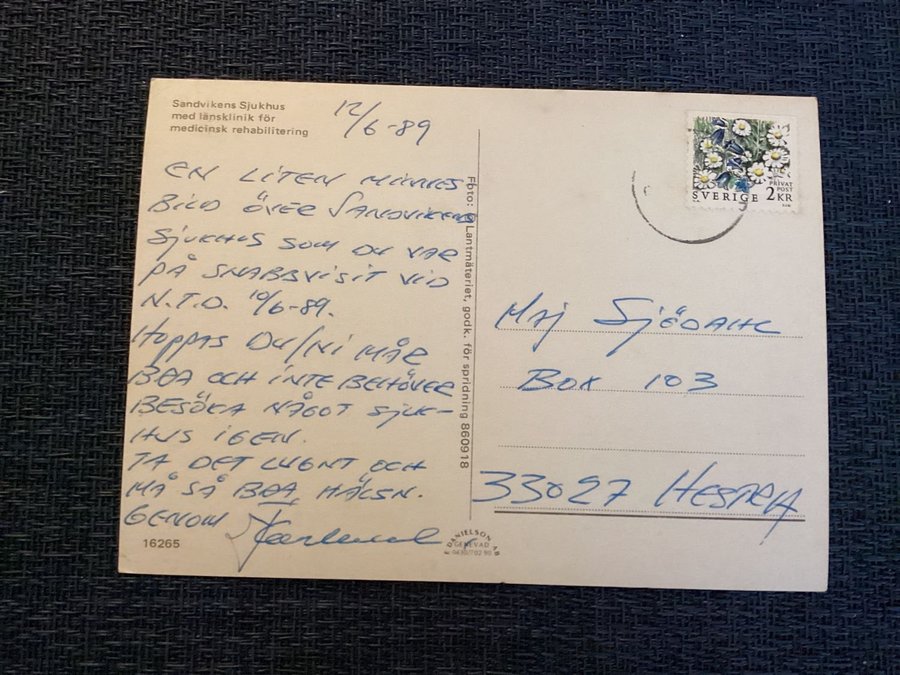 Sandvikens Sjukhus
med länsklinik för
medicinsk rehabilitering
12/6-89
EN LITEN MINNES
BILD ÖVER SANDVIKENS
SJUKHUS SOM DU VAR
PÅ SNABBVISIT VID
N.T.O. 10/6-89.
HOPPAS DU/NI MÅR
BRA OCH INTE BEHÖVER
BESÖKA NÅGOT SJUK-
HUS IGEN.
TA DET LUGNT OCH
MÅ SÅ BRA, HÄLSN.
GENOM
16265
Foto: © Lantmäteriet, godk. för spridning 860918
DANIELSON AB
GENEVAD
0430/702 90
SVERIGE 2KR
PRIVAT
POST
MAJ SJÖDAHL
BOX 103
33027 HESTRA